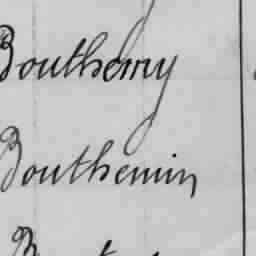 Bouthemy
Bouthemin